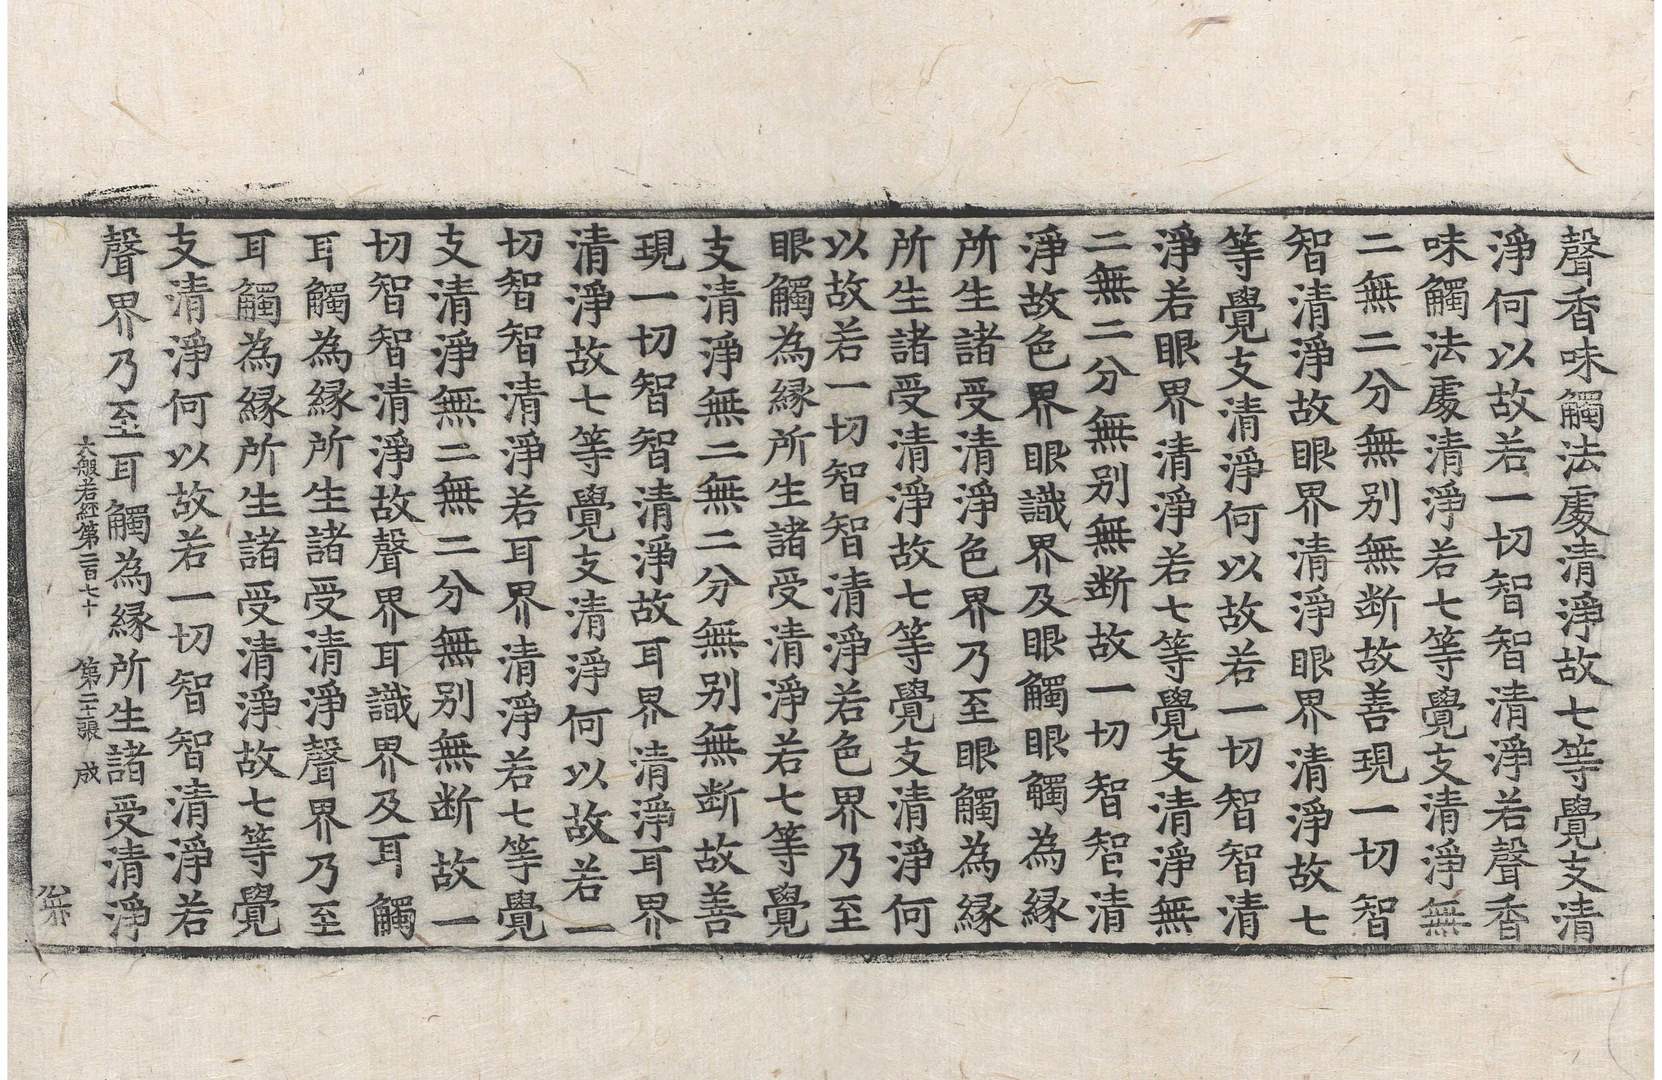 聲香味觸法處清淨故七等覺支清
淨何以故若一切智智清淨若聲香
味觸法處清淨若七等覺支清淨無
二無二分無别無断故善現一切智
智清淨故眼界清淨眼界清淨故七
等覺支清淨何以故若一切智智清
淨若眼界清淨若七等覺支清淨無
二無二分無别無断故一切智智清
淨故色界眼識界及眼觸眼觸為縁
所生諸受清淨色界乃至眼觸為縁
所生諸受清淨故七等覺支清淨何
以故若一切智智清淨若色界乃至
眼觸為縁所生諸受清淨若七等覺
支清淨無二無二分無别無断故善
現一切智智清淨故耳界清淨耳界
清淨故七等覺支清淨何以故若一
切智智清淨若耳界清淨若七等覺
支清淨無二無二分無别無断故一
切智智清淨故聲界耳識界及耳觸
耳觸為縁所生諸受清淨聲界乃至
耳觸為縁所生諸受清淨故七等覺
支清淨何以故若一切智智清淨若
聲界乃至耳觸為縁所生諸受清淨
大般若經第二百七十 第二十張 成